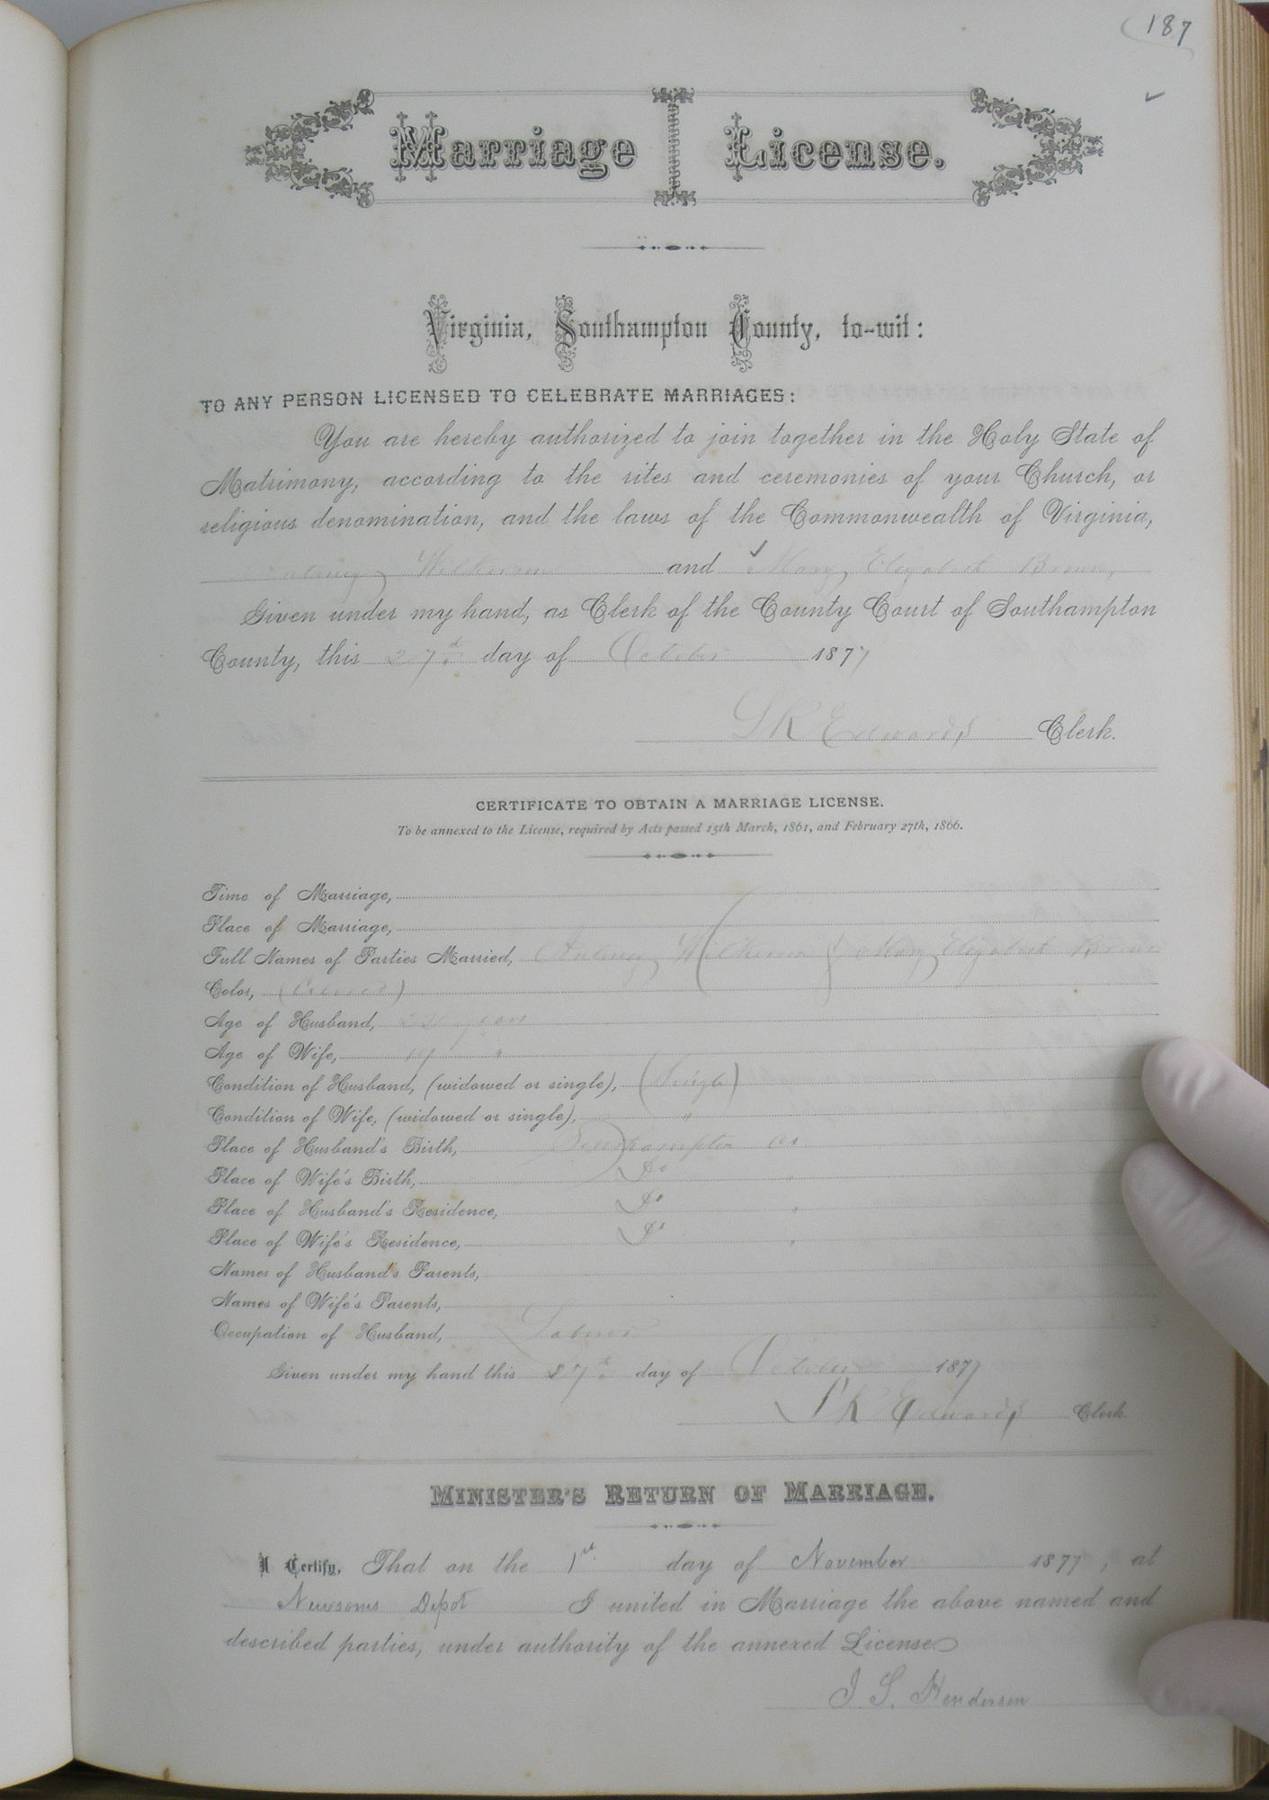 187
Marriage License.
Virginia, Southampton County, to-wit:
TO ANY PERSON LICENSED TO CELEBRATE MARRIAGES:
You are hereby authorized to join together in the Holy State of
Matrimony, according to the rites and ceremonies of your Church, or
religious denomination, and the laws of the Commonwealth of Virginia,
and Mary Elizabeth Brown,
Given under my hand, as Clerk of the County Court of Southampton
County, this 27th day of October 1877
Edwards Clerk.
CERTIFICATE TO OBTAIN A MARRIAGE LICENSE.
To be annexed to the License, required by Acts passed 15th March, 1861, and February 27th, 1866.
Time of Marriage,
Place of Marriage,
Full Names of Parties Married, Mary Elizabeth Brown
Color, (Colored)
Age of Husband, years
Age of Wife, 19 "
Condition of Husband, (widowed or single), (Single)
Condition of Wife, (widowed or single), "
Place of Husband's Birth, Southampton Co
Place of Wife's Birth, Do "
Place of Husband's Residence, Do "
Place of Wife's Residence, Do "
Names of Husband's Parents,
Names of Wife's Parents,
Occupation of Husband, Laborer
Given under my hand this 27th day of October 1877
Edwards Clerk
MINISTER'S RETURN OF MARRIAGE.
I Certify, That on the 1st day of November 1877, at
Newsoms Depot I united in Marriage the above named and
described parties, under authority of the annexed License
Henderson